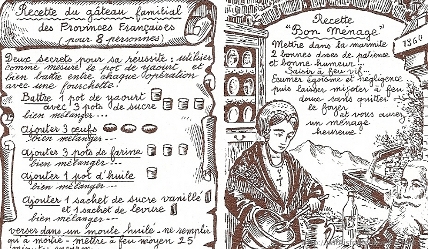 Recette du gâteau familial
des Provinces Françaises
(pour 8 personnes)
Deux secrets pour sa réussite : utiliser
comme mesure le pot de yaourt
bien battre entre chaque opération
avec une fourchette.
Battre 1 pot de yaourt
avec 3 pots de sucre
bien mélanger...
Ajouter 3 œufs
bien mélanger...
Ajouter 3 pots de farine
bien mélanger...
Ajouter 1 pot d'huile
bien mélanger...
Ajouter 1 sachet de sucre vanillé
et 1 sachet de levure
bien mélanger...
verser dans un moule huilé - ne remplir
qu'à moitié - mettre à feu moyen 25
Recette
"Bon Ménage"
Mettre dans la marmite
2 bonnes doses de patience
et bonne humeur...
Saisir à feu vif
Écumer égoïsme et négligence
puis laisser mijoter à feu
doux sans quitter
le foyer
et vous aurez
un ménage
heureux.